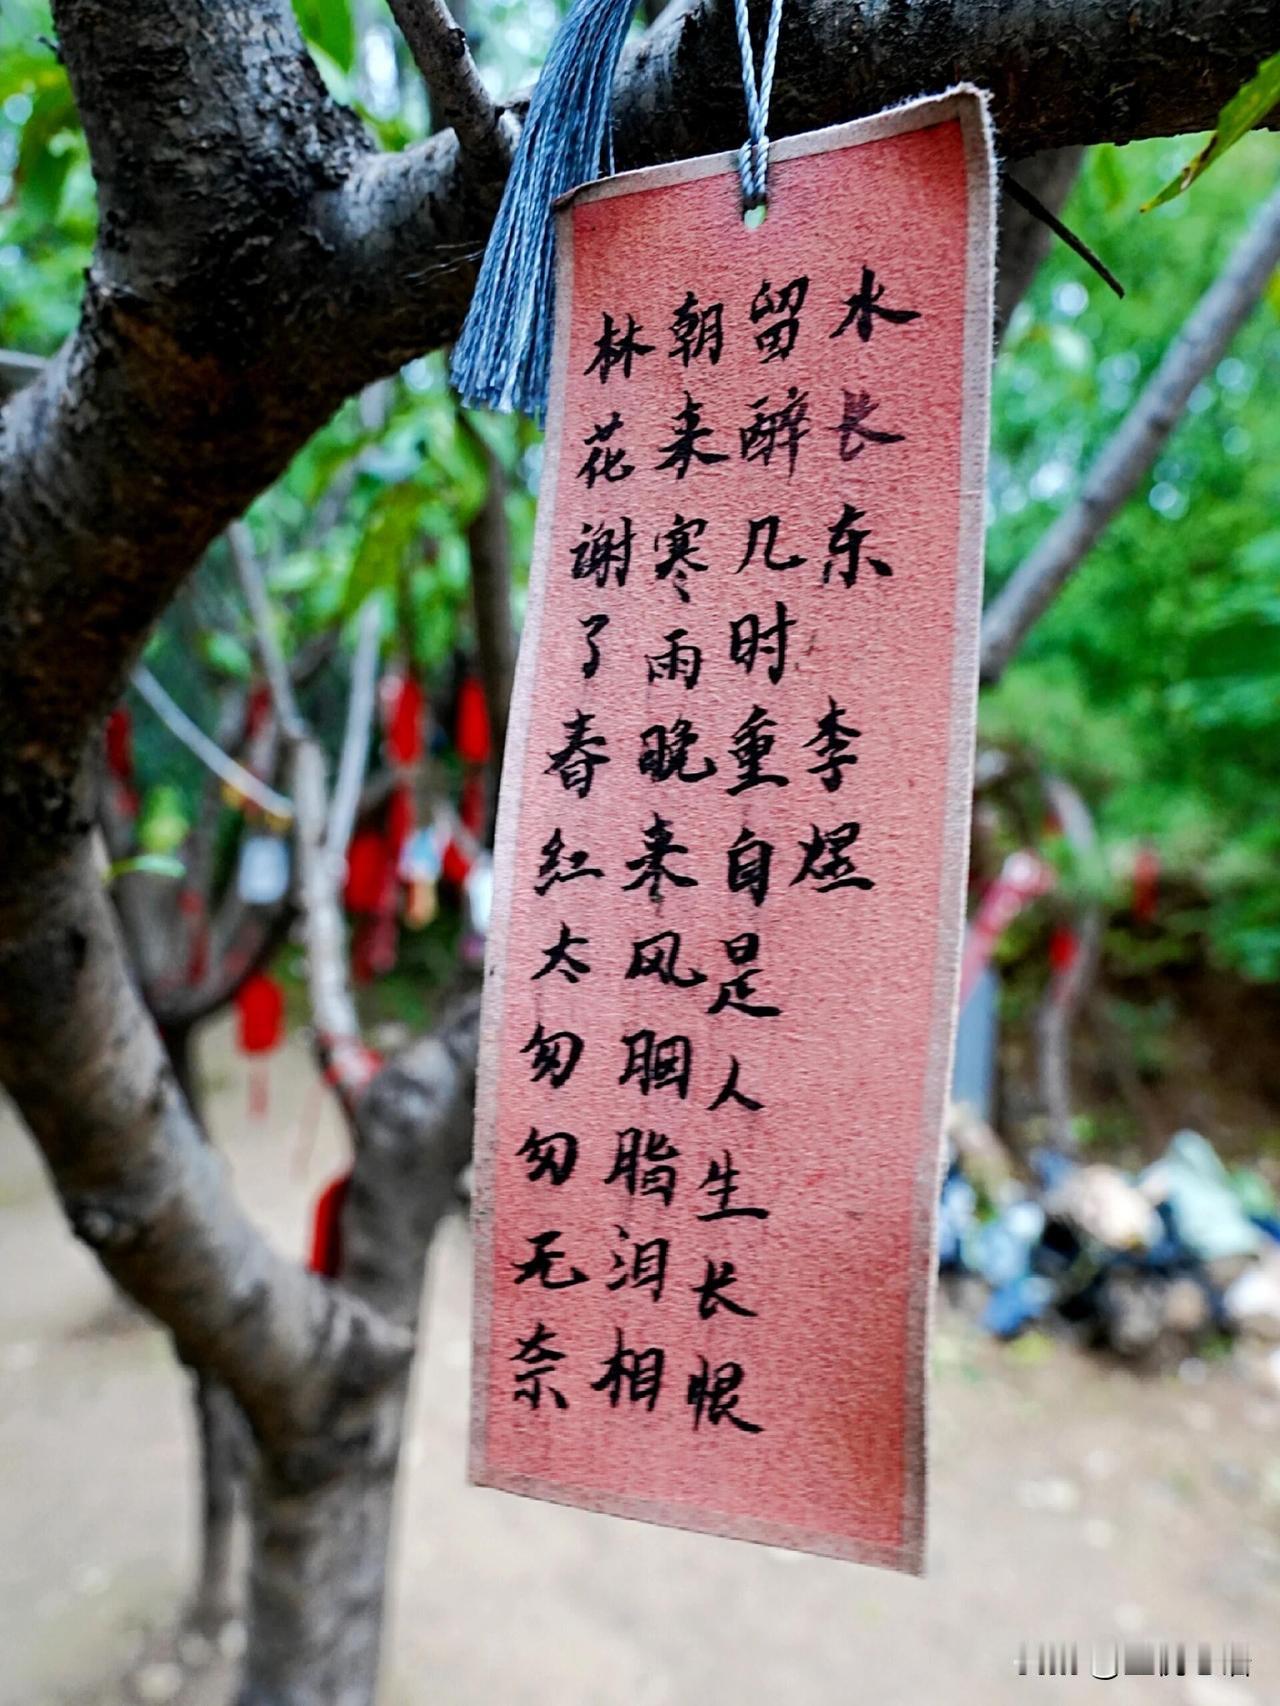 林花谢了春红太匆匆无奈
朝来寒雨晚来风胭脂泪相
留醉几时重自是人生长恨
水长东 李煜